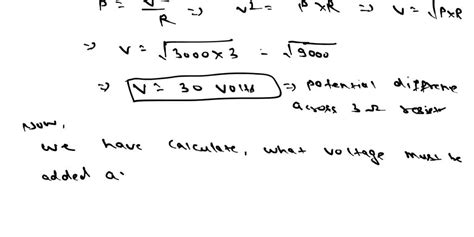 P = V² / R => V² = P×R => V = √P×R
=> V = √3000×3 = √9000
=> V = 30 volts => potential differene
across 3 Ω resistor
Now,
we have calculate, what voltage must be
added a